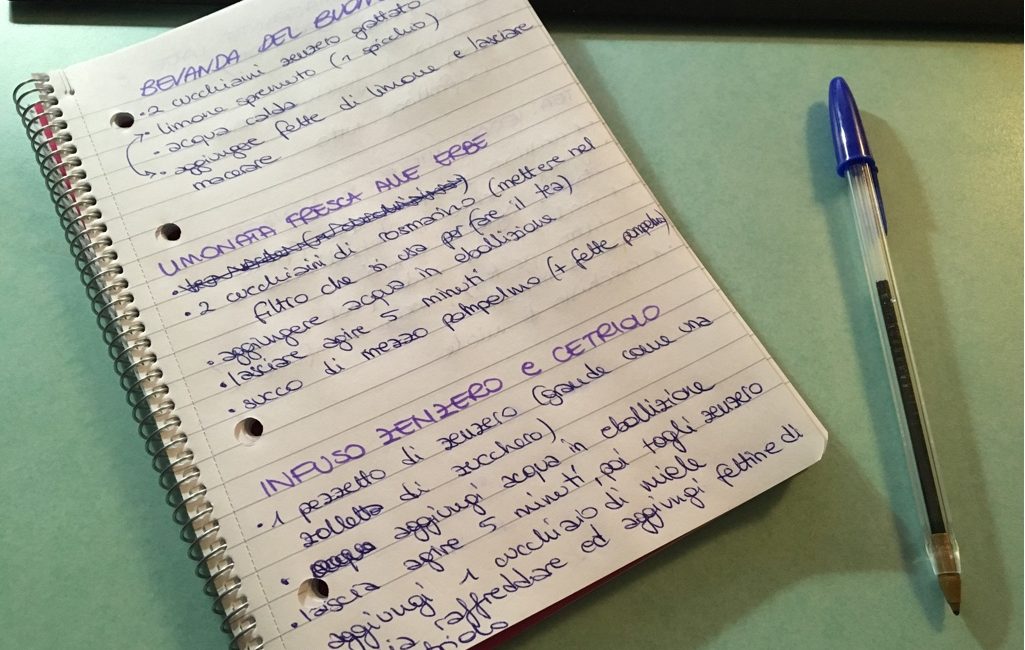 BEVANDA DEL
• 2 cucchiaini zenzero grattato
• limone spremuto (1 spicchio)
• acqua calda
• aggiungere fette di limone e lasciare
macerare
LIMONATA FRESCA ALLE ERBE
• 2 cucchiaini di rosmarino (mettere nel
filtro che si usa per fare il tea)
• aggiungere acqua in ebollizione
• lasciare agire 5 minuti
• succo di mezzo pompelmo (+ fette pompelmo)
INFUSO ZENZERO e CETRIOLO
• 1 pezzetto di zenzero (grande come una
zolletta di zucchero)
• aggiungi acqua in ebollizione
• lascia agire 5 minuti, poi togli zenzero
aggiungi 1 cucchiaio di miele
raffreddare ed aggiungi fettine di